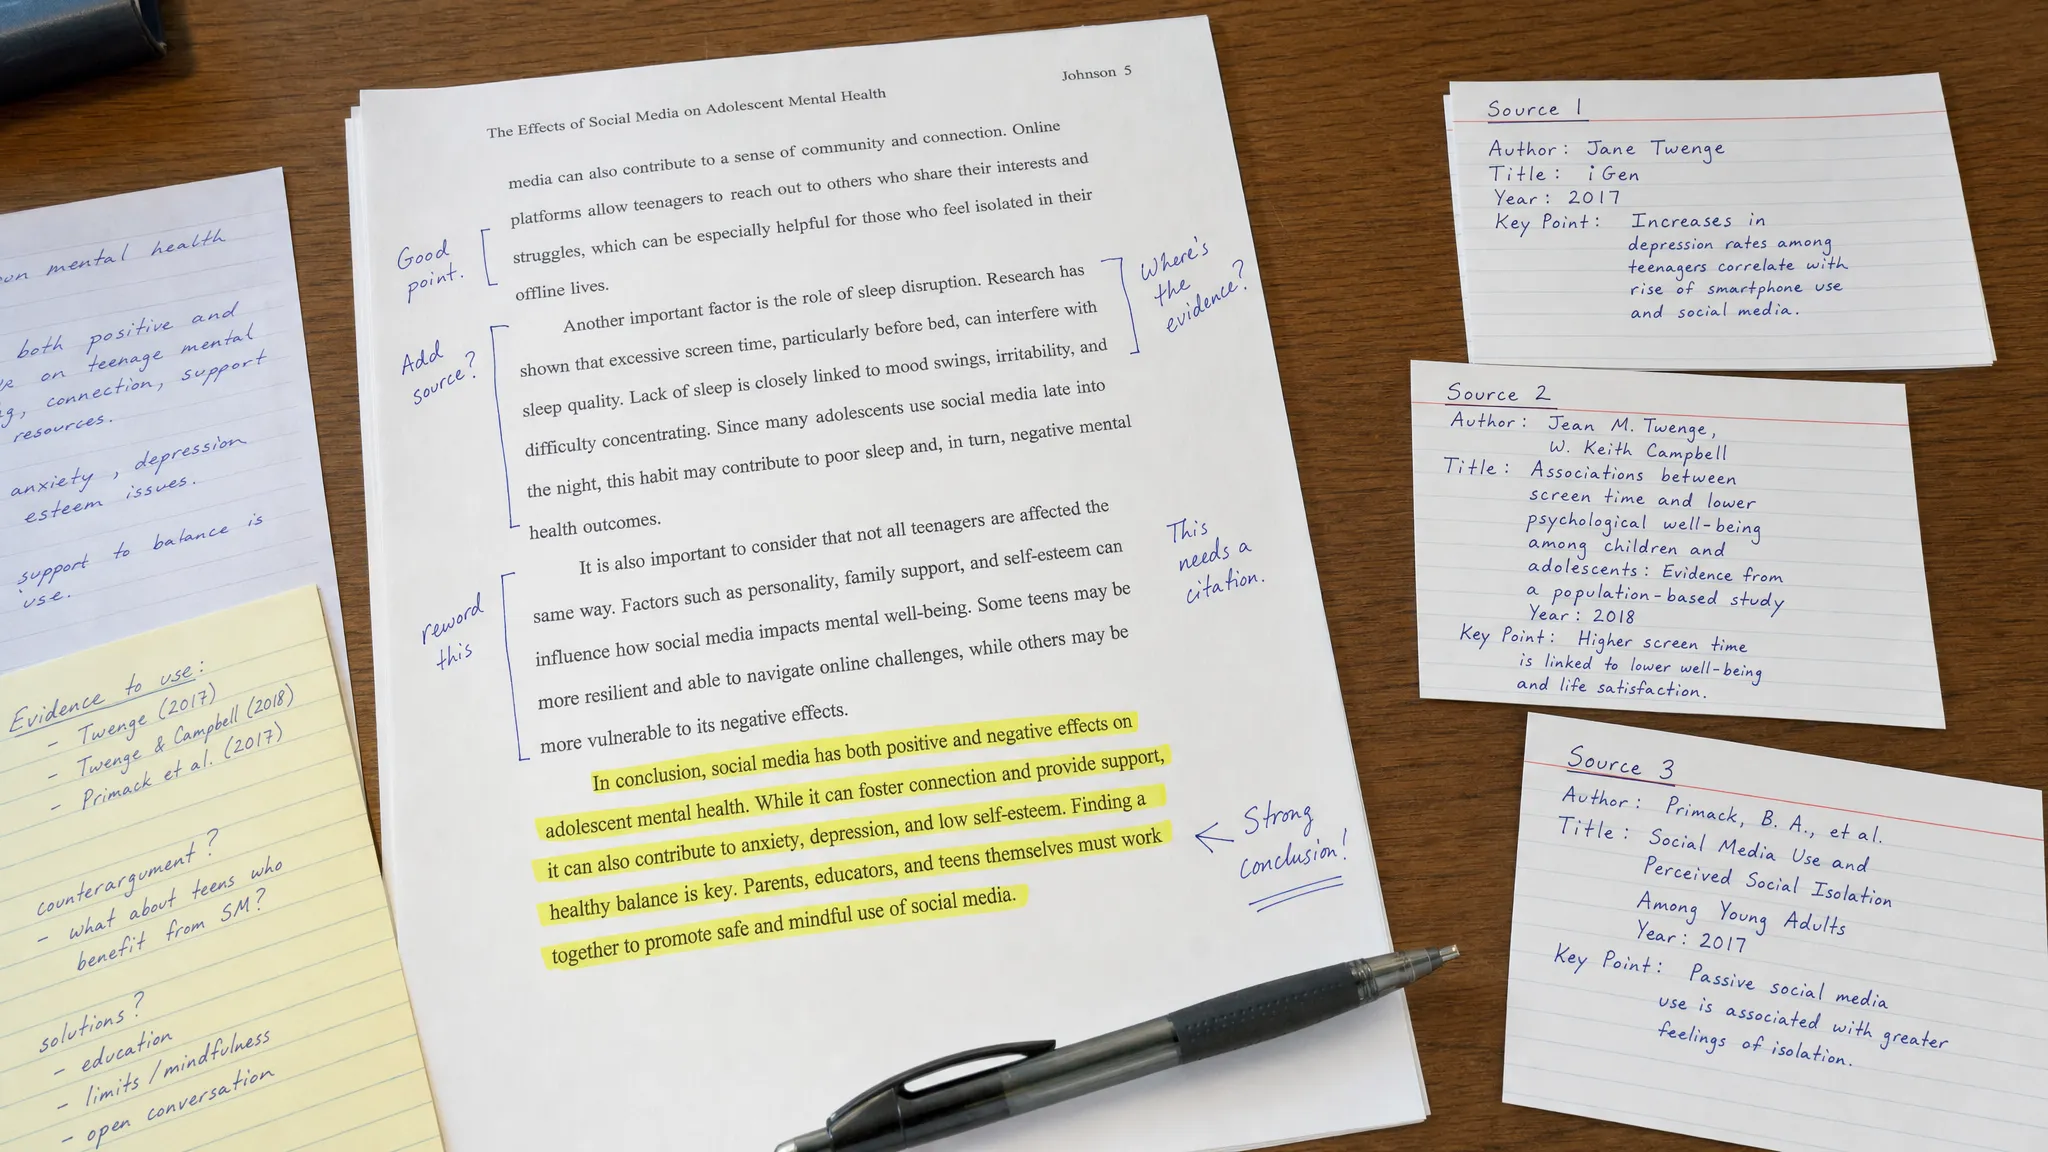 Johnson 5
The Effects of Social Media on Adolescent Mental Health
media can also contribute to a sense of community and connection. Online
platforms allow teenagers to reach out to others who share their interests and
struggles, which can be especially helpful for those who feel isolated in their
offline lives.
Another important factor is the role of sleep disruption. Research has
shown that excessive screen time, particularly before bed, can interfere with
sleep quality. Lack of sleep is closely linked to mood swings, irritability, and
difficulty concentrating. Since many adolescents use social media late into
the night, this habit may contribute to poor sleep and, in turn, negative mental
health outcomes.
It is also important to consider that not all teenagers are affected the
same way. Factors such as personality, family support, and self-esteem can
influence how social media impacts mental well-being. Some teens may be
more resilient and able to navigate online challenges, while others may be
more vulnerable to its negative effects.
In conclusion, social media has both positive and negative effects on
adolescent mental health. While it can foster connection and provide support,
it can also contribute to anxiety, depression, and low self-esteem. Finding a
healthy balance is key. Parents, educators, and teens themselves must work
together to promote safe and mindful use of social media.
Good
point.
Add
source?
reword
this
Where's
the
evidence?
This
needs a
citation.
Strong
conclusion!
mental health
both positive and
on teenage mental
connection, support
resources.
anxiety, depression
esteem issues.
support to balance is
use.
Evidence to use:
- Twenge (2017)
- Twenge & Campbell (2018)
- Primack et al. (2017)
counterargument?
- what about teens who
benefit from SM?
solutions?
- education
- limits/mindfulness
- open conversation
Source 1
Author: Jane Twenge
Title: iGen
Year: 2017
Key Point: Increases in
depression rates among
teenagers correlate with
rise of smartphone use
and social media.
Source 2
Author: Jean M. Twenge,
W. Keith Campbell
Title: Associations between
screen time and lower
psychological well-being
among children and
adolescents: Evidence from
a population-based study
Year: 2018
Key Point: Higher screen time
is linked to lower well-being
and life satisfaction.
Source 3
Author: Primack, B. A., et al.
Title: Social Media Use and
Perceived Social Isolation
Among Young Adults
Year: 2017
Key Point: Passive social media
use is associated with greater
feelings of isolation.